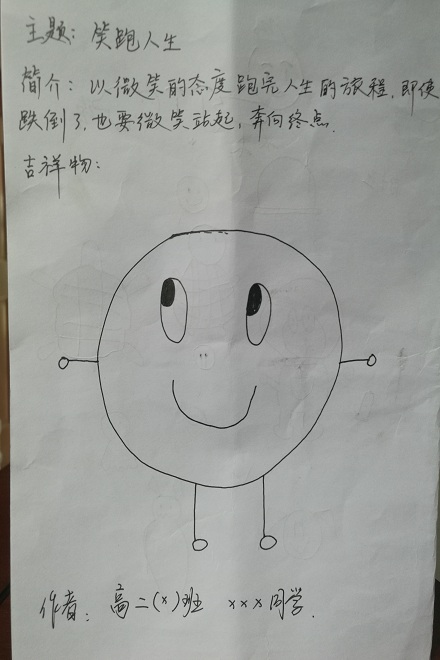 主题：笑跑人生
简介：以微笑的态度跑完人生的旅程，即使
跌倒了，也要微笑站起，奔向终点.
吉祥物：
作者：高二(×)班 ×××同学.